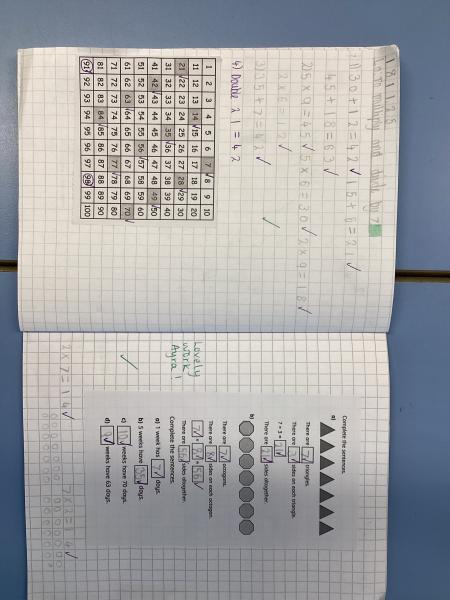 18.1.23
L.I. To multiply and divide by 7
1) 30 + 12 = 42 15 + 6 = 21
45 + 18 = 63
2) 5 x 9 = 45 5 x 6 = 30 2 x 9 = 18
2 x 6 = 12
3) 35 + 7 = 42
4) Double 21 = 42
1 2 3 4 5 6 7 8 9 10
11 12 13 14 15 16 17 18 19 20
21 22 23 24 25 26 27 28 29 30
31 32 33 34 35 36 37 38 39 40
41 42 43 44 45 46 47 48 49 50
51 52 53 54 55 56 57 58 59 60
61 62 63 64 65 66 67 68 69 70
71 72 73 74 75 76 77 78 79 80
81 82 83 84 85 86 87 88 89 90
91 92 93 94 95 96 97 98 99 100
Complete the sentences.
a)
There are 7 triangles.
There are 3 sides on each triangle.
7 × 3 = 21
There are 21 sides altogether.
b)
There are 7 octagons.
There are 8 sides on each octagon.
7 × 8 = 56
There are 56 sides altogether.
Complete the sentences.
a) 1 week has 7 days.
b) 5 weeks have 35 days.
c) 10 weeks have 70 days.
d) 9 weeks have 63 days.
Lovely
work
Ayra!
2 x 7 = 14 7 x 2 = 14